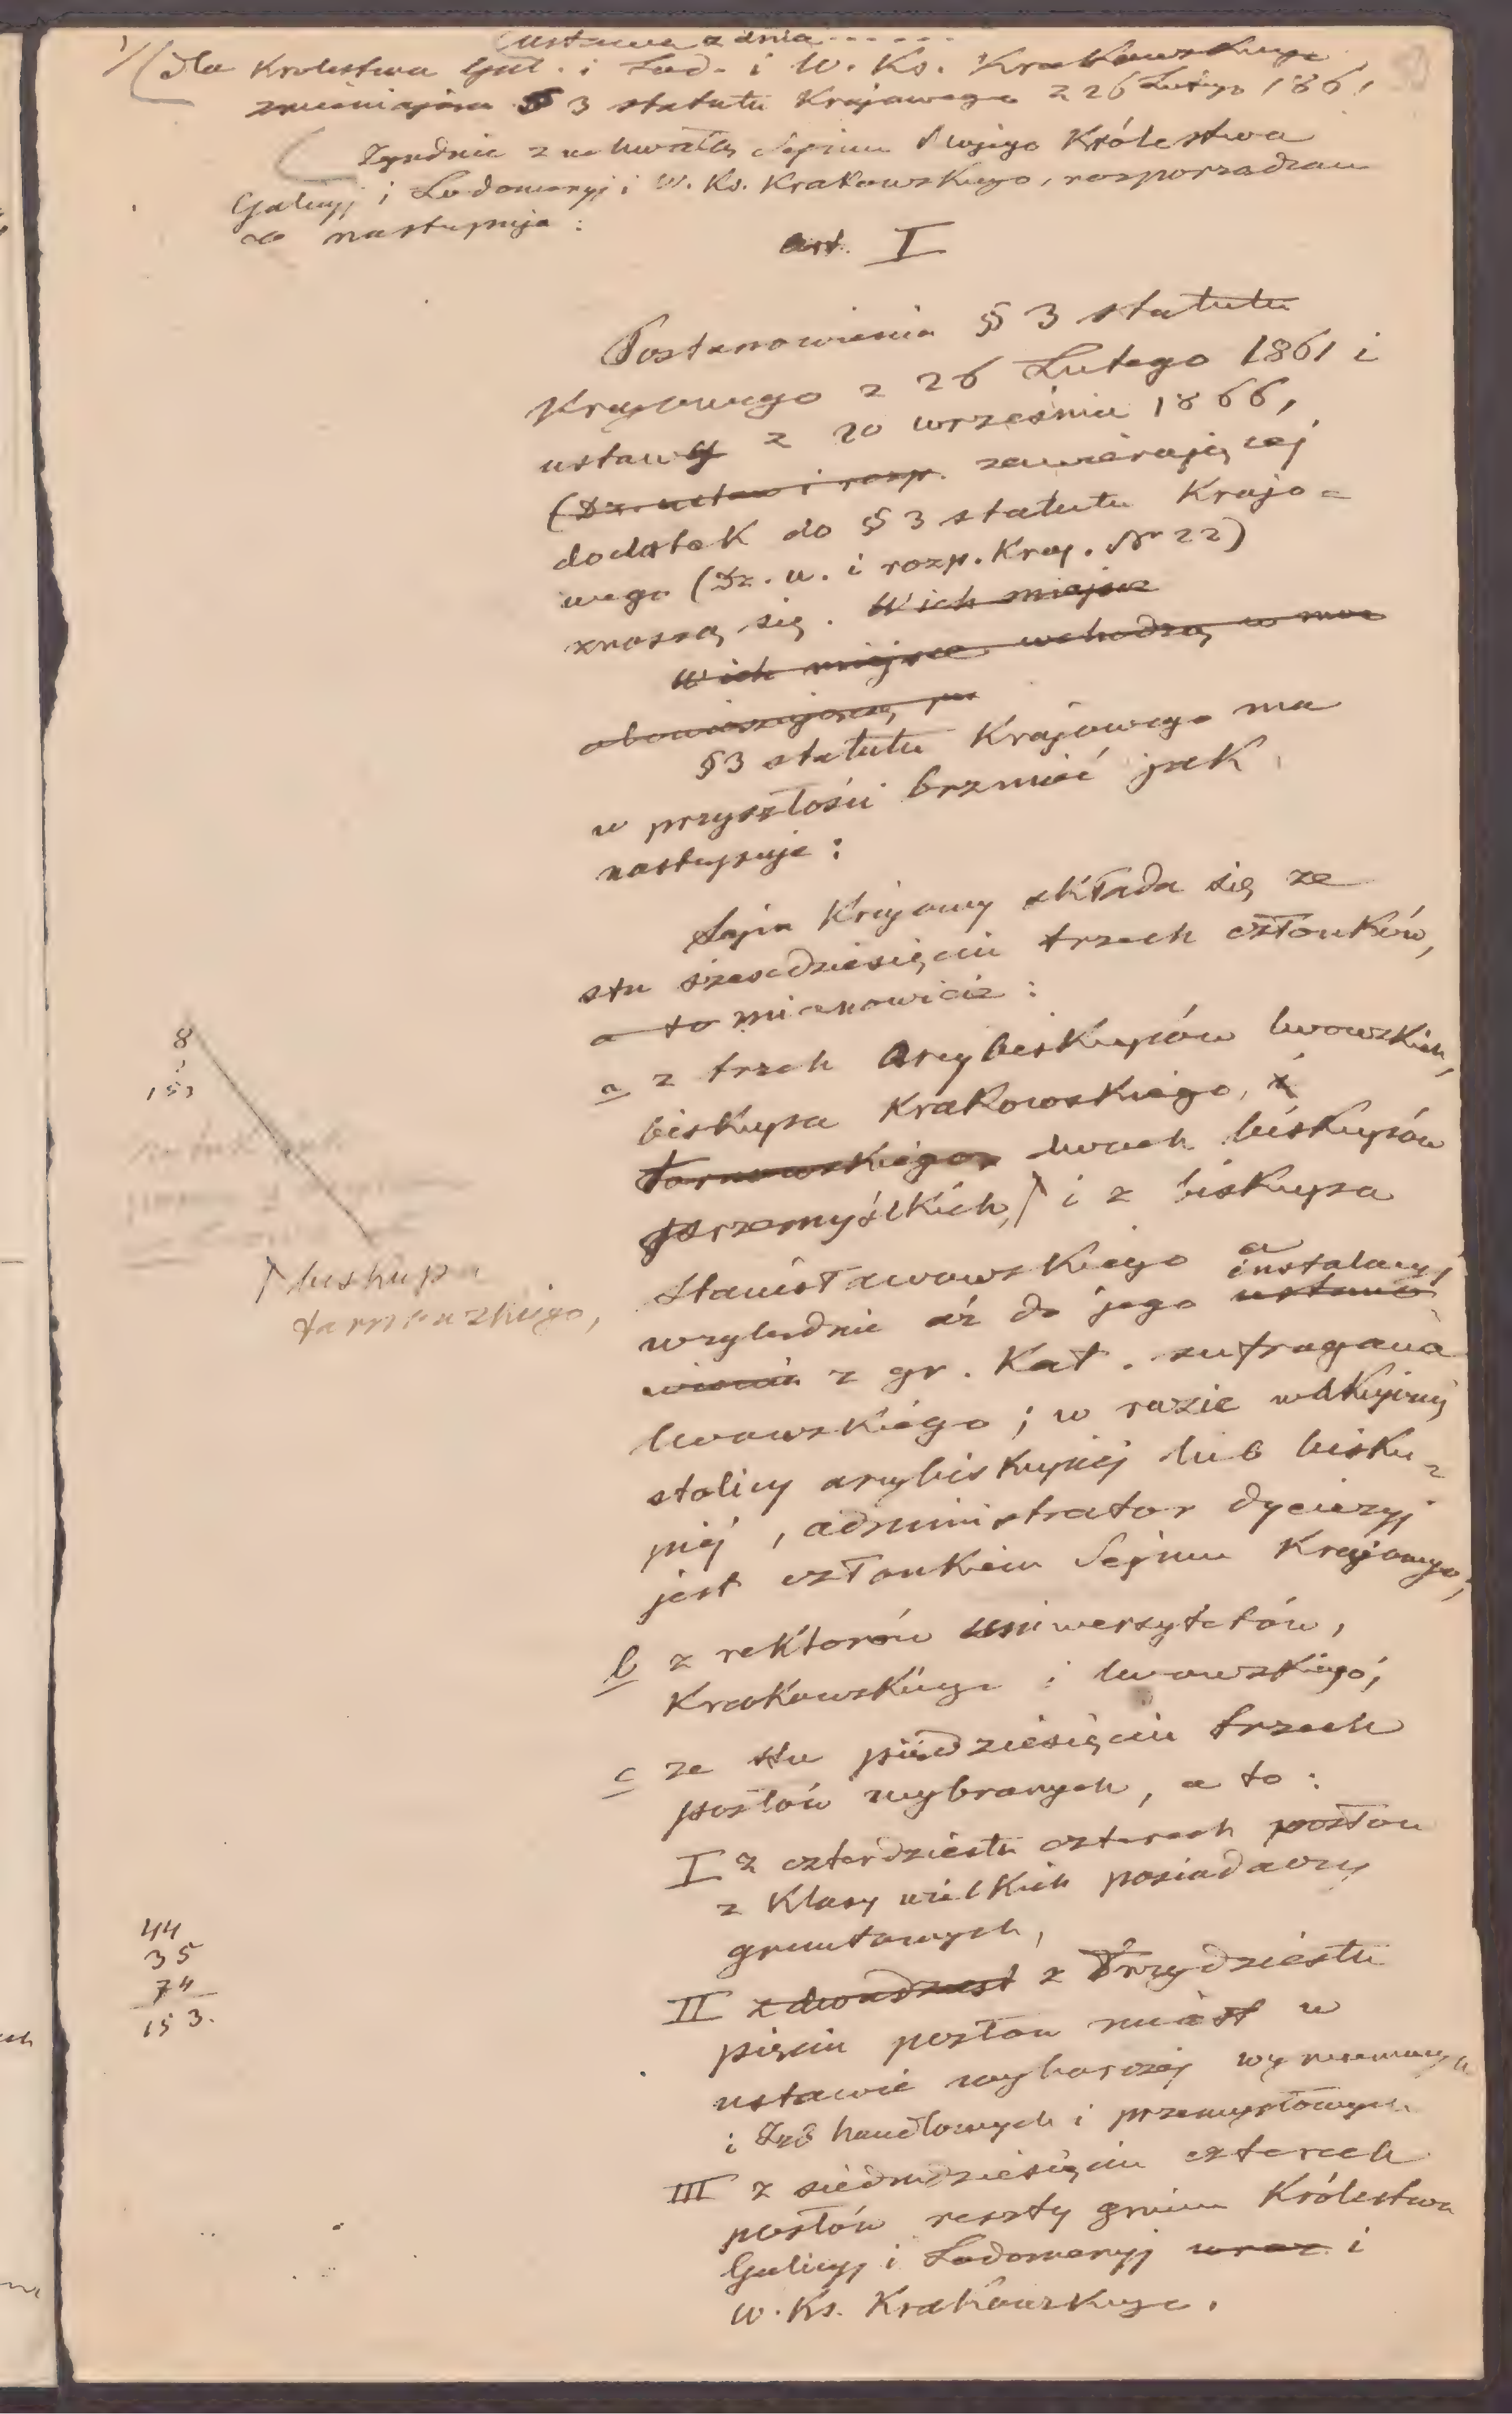 Ustawa z dnia . . . . . .
1/ (dla Królestwa Gal. i Lod. i W. Ks. Krakowskiego,
zmieniająca § 3 statutu Krajowego z 26 Lutego 1861
Zgodnie z uchwałą Sejmu Mojego Królestwa
Galicyj i Lodomeryj i W. Ks. Krakowskiego, rozporządzam
co następuje :
art. I
Postanowienia § 3 statutu
Krajowego z 26 Lutego 1861 i
ustawy z 20 września 1866,
(Dz. ustaw i rozp. zawierającej
dodatek do § 3 statutu Krajo=
wego (Dz. u. i rozp. Kraj. Nr 22)
znoszą się. W ich miejsce
W ich miejsce wchodzą w moc
obowiązującą
§ 3 statutu Krajowego ma
w przyszłości brzmieć jak
następuje :
Sejm Krajowy składa się ze
stu sześcdziesięciu trzech członków,
a to mianowicie :
a z trzech Arcybiskupów lwowskich,
biskupa Krakowskiego, i
tarnowskiego, dwóch biskupów
przemyślkich, ↾ i z biskupa
Stanisławowskiego a
względnie aż do jego instalacyi,
ustano
wienia z gr. Kat. sufragana
lwowskiego ; w razie wakującej
stolicy arcybiskupiej lub bisku=
piej, administrator dyecezyj
jest członkiem Sejmu Krajowego;
b z rektorów uniwersytetów,
Krakowskiego i lwowskiego;
c ze stu pięćdziesięciu trzech
posłów wybranych, a to :
I z czterdziestu czterech posłów
z Klasy wielkich posiadaczy
gruntowych,
II z dwudziest z Trzydziestu
pięciu posłów miast w
ustawie wyborczej wymienionych
i Izb handlowych i przemysłowych
III z siedmdziesięciu czterech
posłów reszty gmin Królestwa
Galicyj i Lodomeryj wraz i
W. Ks. Krakowskiego.
8
153
↾ biskupa
tarnowskiego,
44
35
74
153.